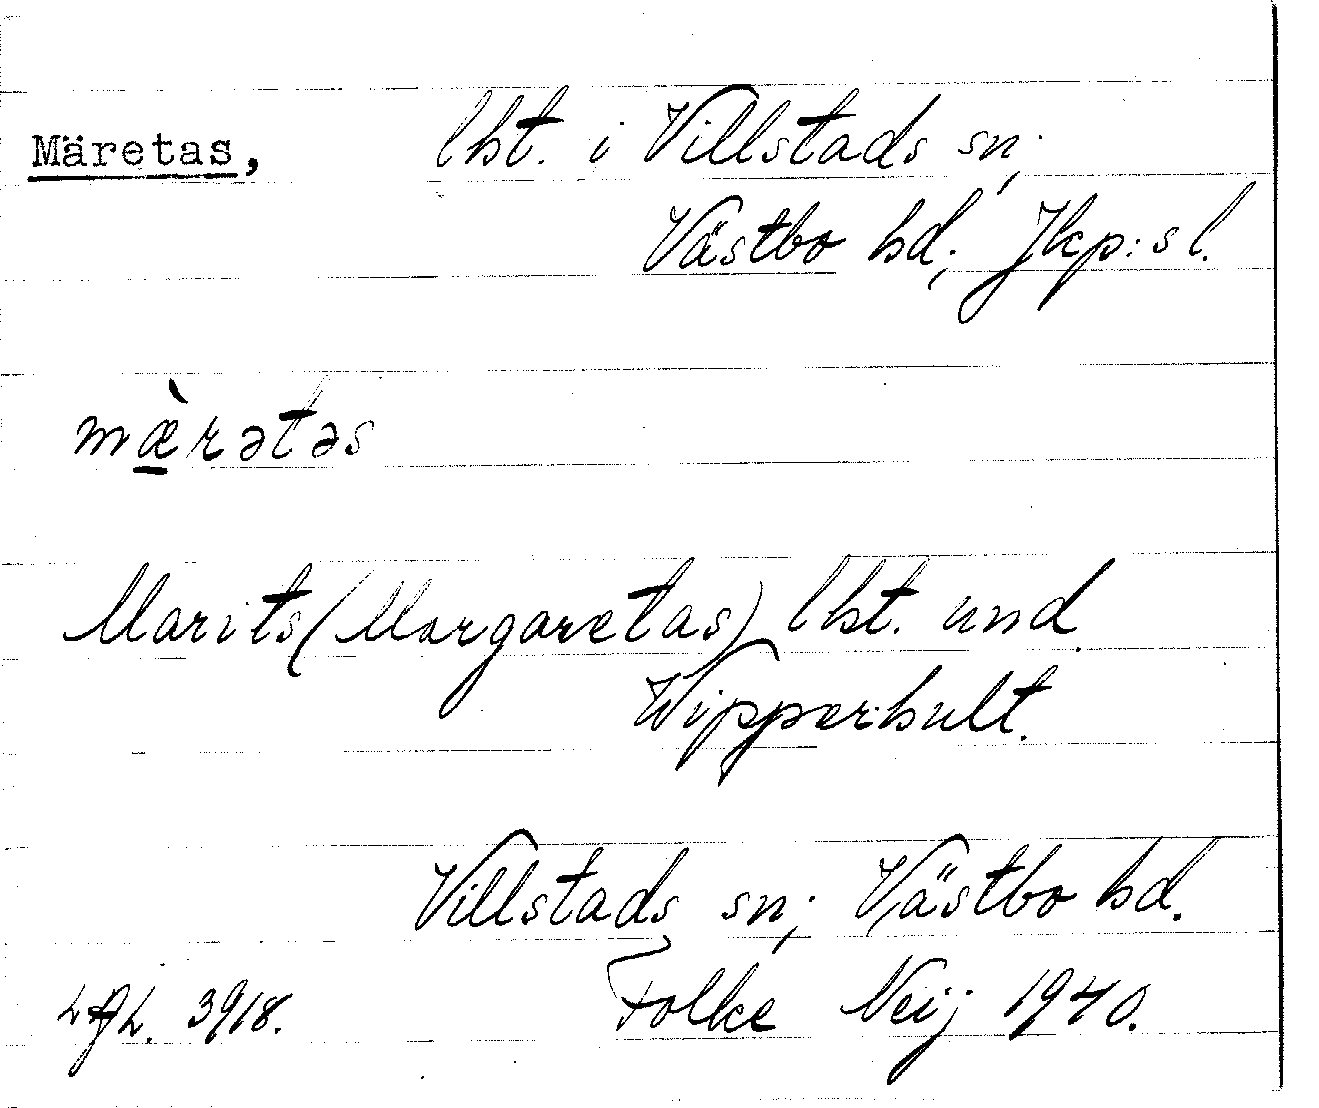 Märetas, lht. i Villstads sn;
Västbo hd; Jkp:s l.
mæ̠̀rətəs
Marits (Margaretas) lht. und.
Wipperhult.
Villstads sn; Västbo hd.
3918. Folke Neij 1940.